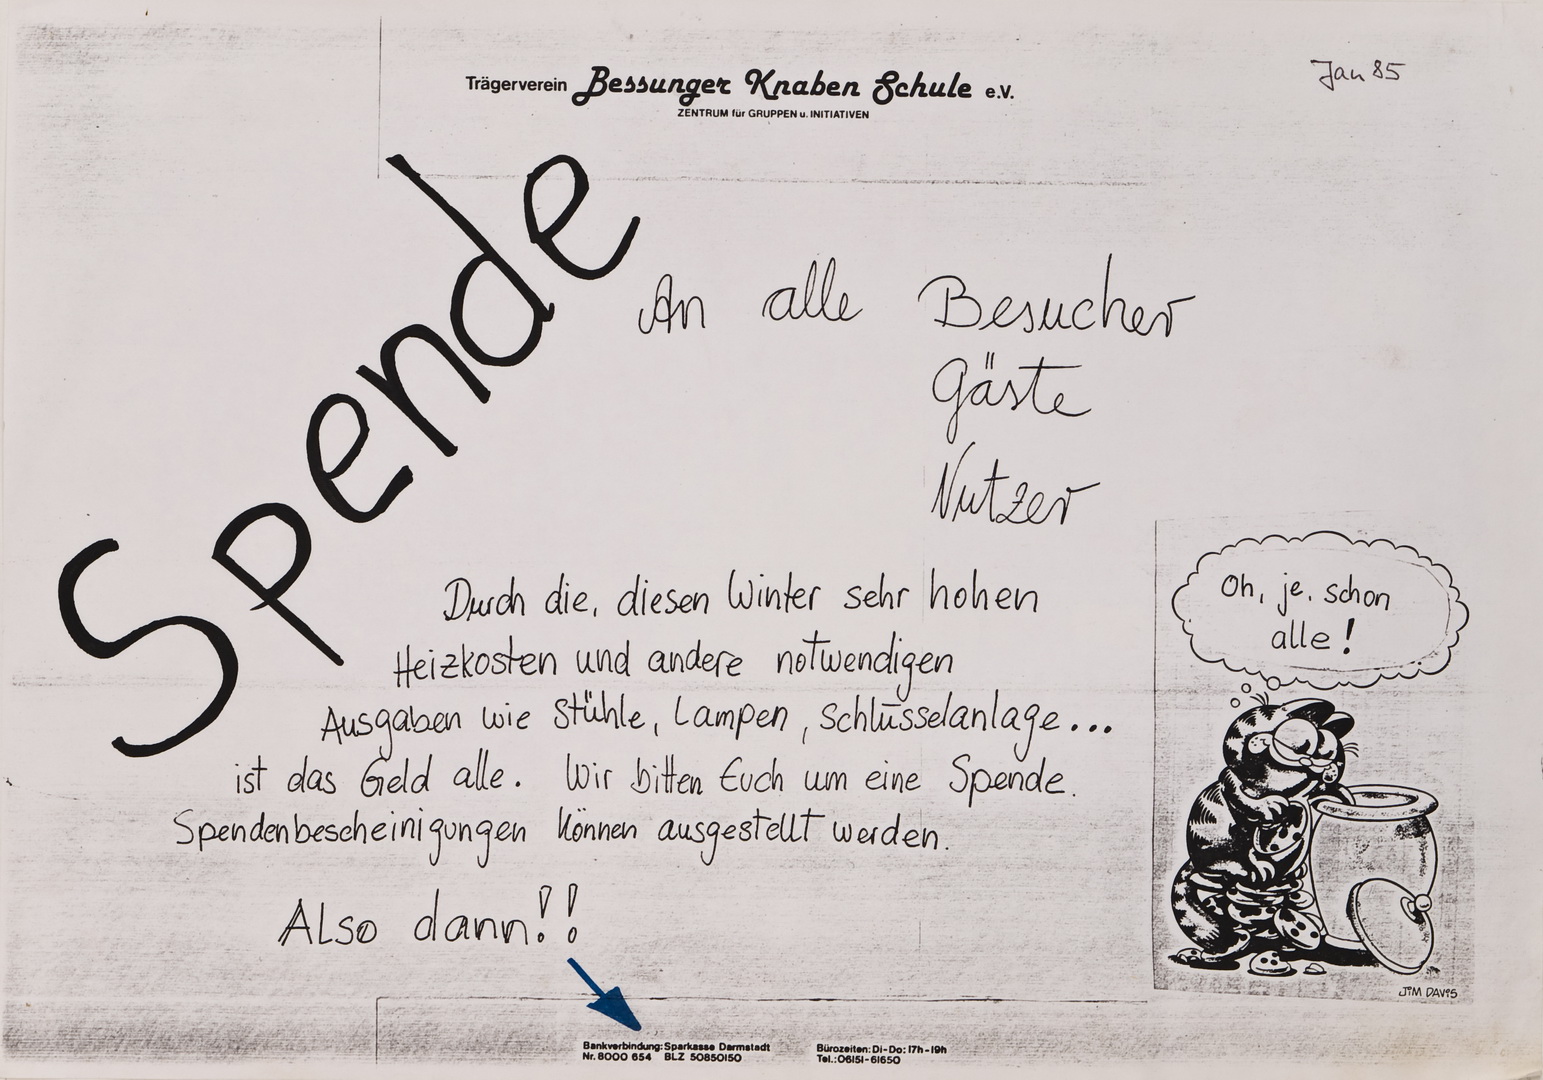 Trägerverein Bessunger Knaben Schule e.V.
ZENTRUM für GRUPPEN u. INITIATIVEN
Jan 85
Spende
An alle Besucher
Gäste
Nutzer
Durch die, diesen Winter sehr hohen
Heizkosten und andere notwendigen
Ausgaben wie Stühle, Lampen, Schlüsselanlage...
ist das Geld alle. Wir bitten Euch um eine Spende.
Spendenbescheinigungen können ausgestellt werden.
Also dann!!
Oh, je, schon
alle!
JIM DAVIS
Bankverbindung: Sparkasse Darmstadt
Nr. 8000 654 BLZ 50850150
Bürozeiten: Di-Do: 17h-19h
Tel.: 06151-61650